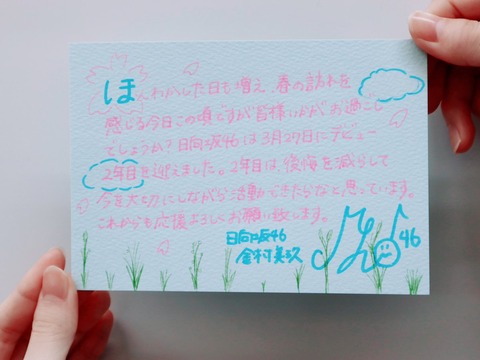 ほんわかした日も増え、春の訪れを
感じる今日この頃ですが皆様いかがお過ごし
でしょうか?日向坂46は3月27日にデビュー
2年目を迎えました。2年目は、後悔を減らして
今を大切にしながら活動できたらなと思っています。
これからも応援よろしくお願い致します。
日向坂46
金村美玖
46